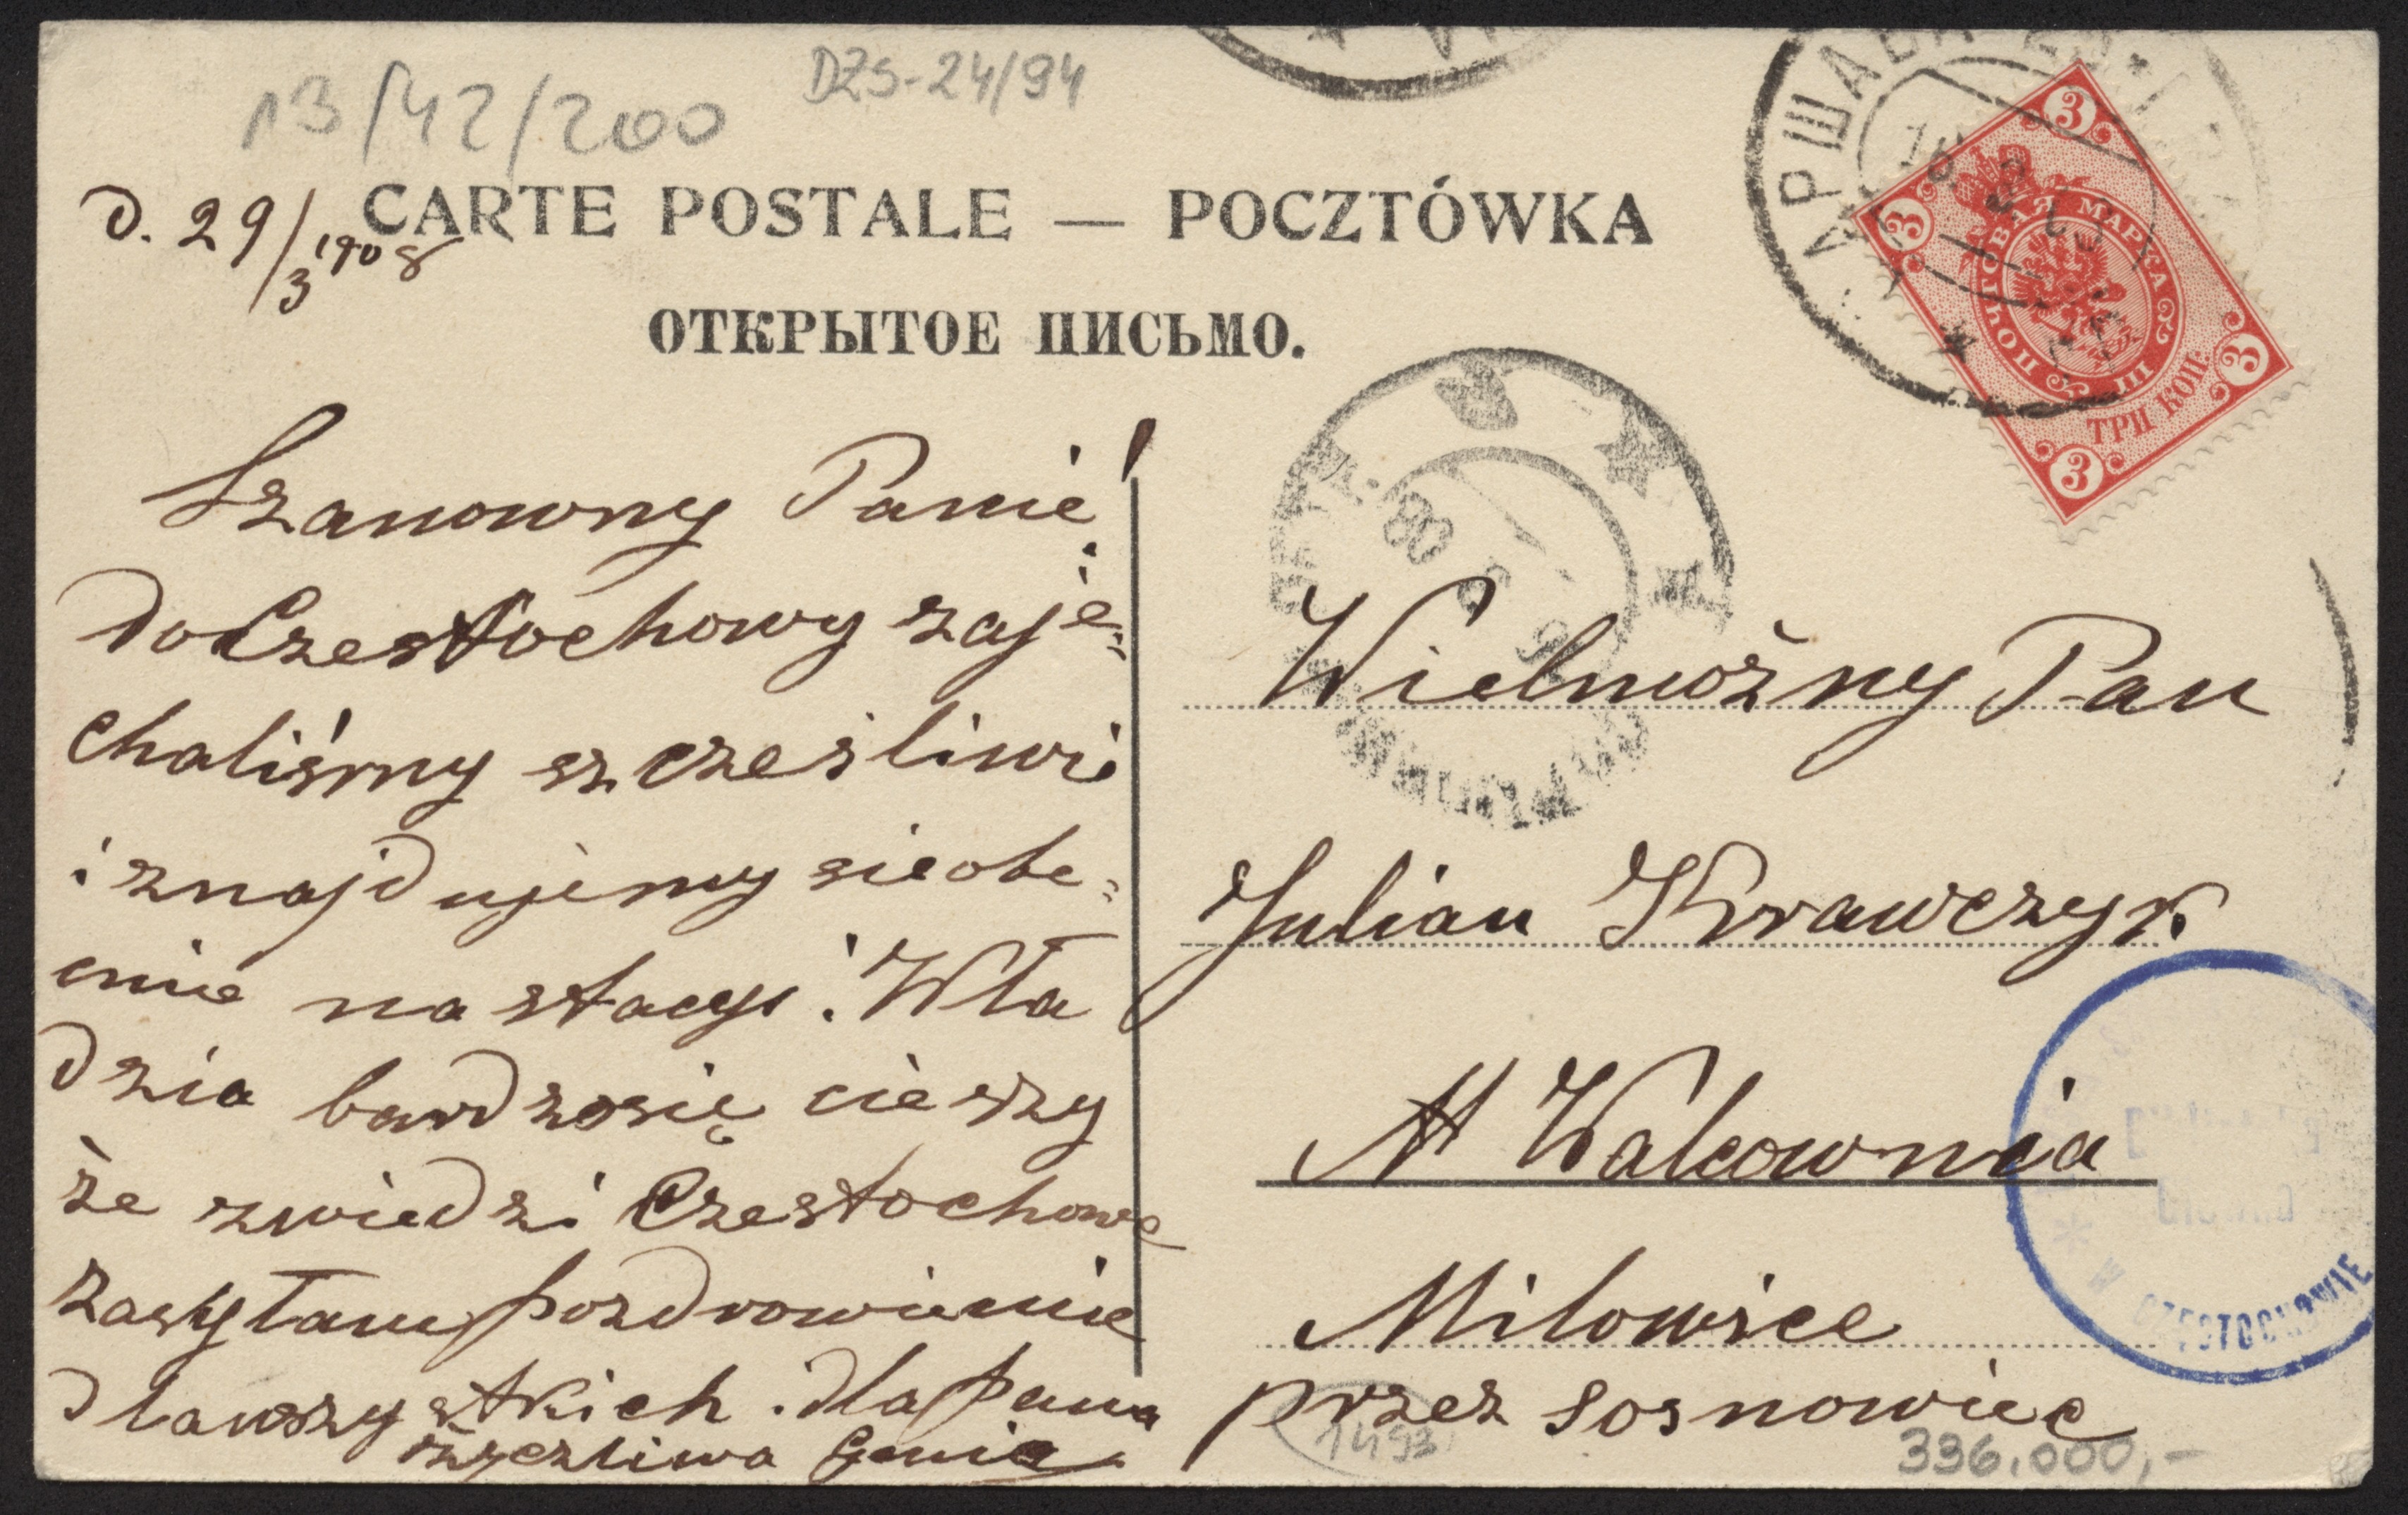 13/42/200
DZS-24/94
D. 29/3 1908
CARTE POSTALE — POCZTÓWKA
ОТКРЫТОЕ ПИСЬМО.
Szanowny Panie!
do Czestochowy zaje-
chaliśmy szcześliwie
i znajdujemy sie obe-
cnie na stacyi. Wła
dzia bardzo się cieszy
że zwiedzi Czestochowe
zasyłam pozdrowienie
dla wszystkich i dla pana
życzliwa Genia
ПОЧТОВАЯ МАРКА
III
ТРИ КОП.
3
3
3
3
АРШАВА
08
Wielmożny Pan
Julian Krawczyk
W Walcownia
Milowice
przez Sosnowiec
W CZĘSTOCHOWIE
1493
336.000,-